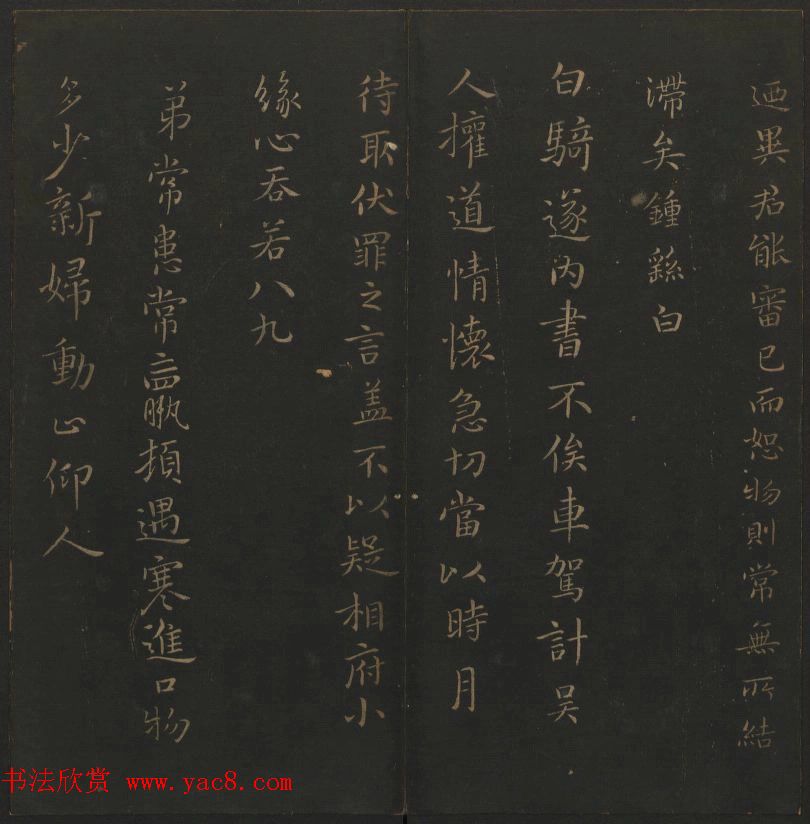 廼異君能審己而恕物則常無所結
滯矣鍾繇白
白騎遂內書不俟車駕計吴
人權道情懷急切當以時月
待取伏罪之言盖不以疑相府小
緣心吞若八九
弟常患常羸頓遇寒進口物
多少新婦動止仰人
书法欣赏 www.yac8.com